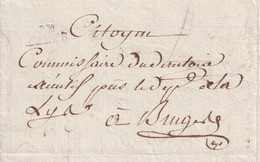 Citoyen
Commissaire du directoire
exécutif près le dept de la
Lys
à Bruges